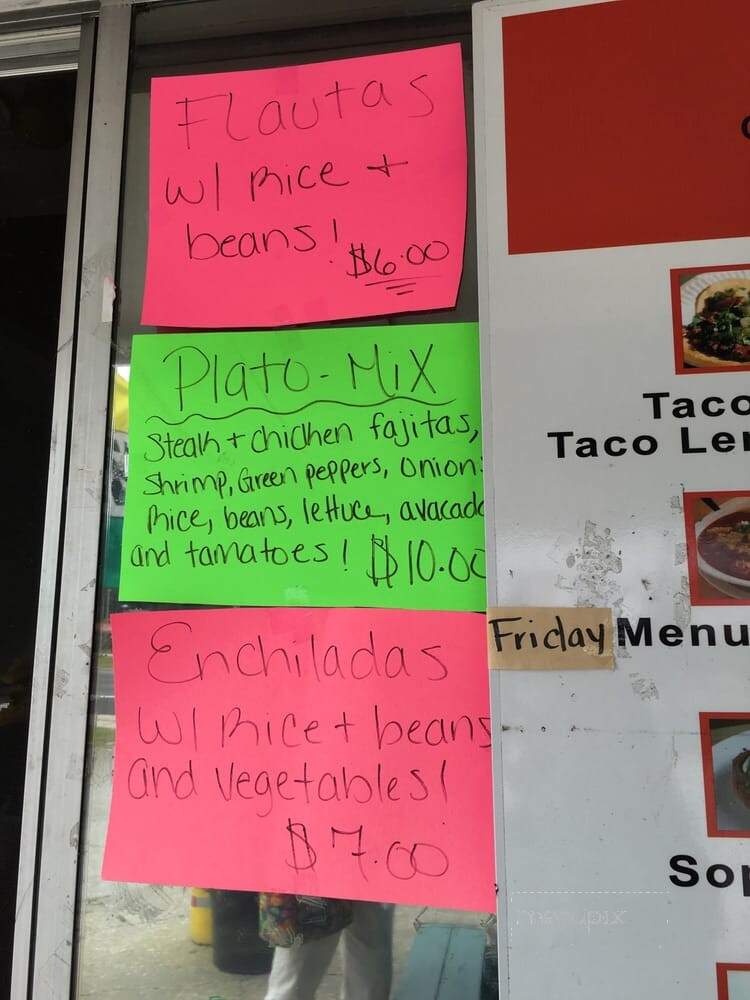 Flautas
w/ Rice +
beans!
$6.00
Plato-Mix
Steak + chicken fajitas,
Shrimp, Green peppers, onion
Rice, beans, lettuce, avacado
and tamatoes! $10.00
Enchiladas
w/ Rice + beans
and vegetables!
$7.00
Taco
Taco
Friday Menu
menupix